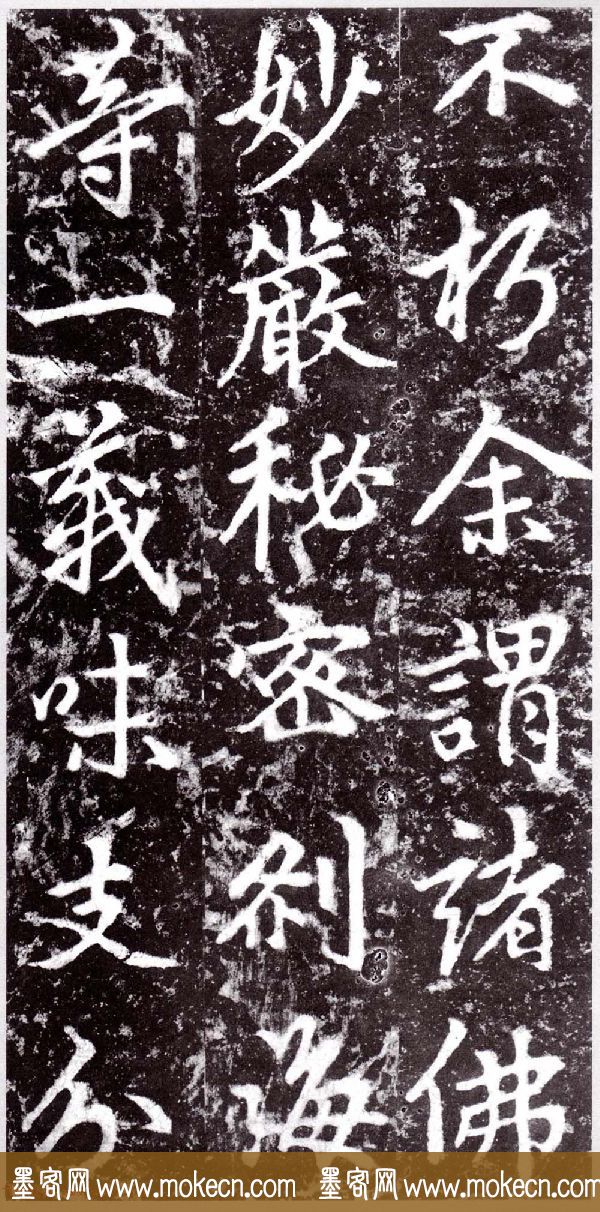 不朽余謂諸佛
妙嚴秘密刹海
等一義味支分
墨客网 www.mokecn.com 墨客网 www.mokecn.com